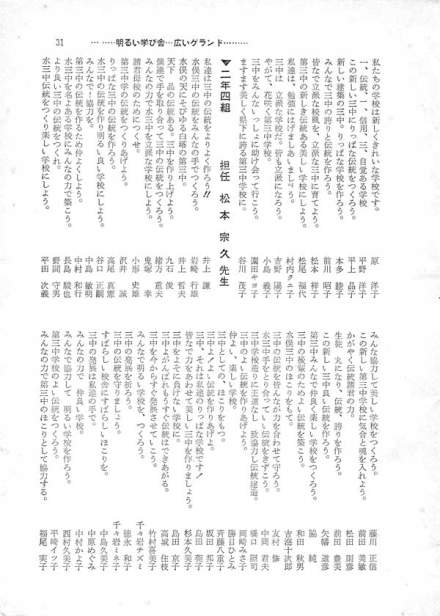 31
………明るい学び舎…広いグランド………
私たちの学校は新しくきれいな学校です。 原 洋子
一、伝統、二、信用、三、自覚ある学校 平野 洋子
この新しい三中にりっぱな伝統をつくろう。
新しい建築の三中。りっぱな学校を作ろう。
みんなで三中の誇りと伝統を作ろう。
皆なで立派な校風を、立派な三中に育てよう。 前川 昭子
第三中の新しき伝統ある美しい学校にしよう。 松本 祥子
私達は、勉強にはげましあいましょう。 松尾 福代
三中は、立派な学校だ 皆も立派になろう。 村内クニ子
やがて、花咲く第三中学校。 吉野 陽子
三中をみんないっしょに助け会って行こう。
ますます美しく県下に誇る第三中学校に。 谷川 茂子
▼二年四組 担任 松本 宗久先生
私達は三中の伝統をよりよく作ろう!! 井上 謙
水俣三中の伝統をみんなの手でつくろう。 岩崎 行雄
天下一品の伝統ある。三中を作り上げよう。
個達で手を取り合って三中の伝統をつくろう。 緒方 重夫
みんなの力で水三中を立派な学校にしよう。
諸君母校のためにつくせ。 小形 史雄
第三中学の伝統をつくりあげよう。 沢井 誠
りっぱな三中の伝統を作ろう。
水三中の伝統を作り良い学校にしよう。 谷口 正嗣
みんなで!協力を。 中島 敏明
三中の伝統を作るため仲よくしよう。 中村 和行
水三中を名よある学校にみんなの力で築こう。 長島 駿也
より良い三中の伝統をつくろう。 野間 守男
水三中伝統をつくり楽しい学校にしよう。 平田 次義
みんな協力して美しい学校をつくろう。 藤川 正信
この新しい第三中学校に気合と魂を入れよう。
かがやく伝統諸君の力。 前田
生徒一丸となり、伝統、誇りを作ろう。 松田
この新しい三中良い伝統を作ろう。 前田
第三中みんなで仲良く楽しい学校をつくろう。 矢幡 道彦
三中の後輩のためよい伝統を築こう。 脇 純
水俣三中のほこりをもて。 和田 秋男
三中の伝統を皆んなが力を合わせて守ろう。 吉海十次郎
水三中手をとり合っていい伝統をきずこう。 友村 修
三中学校造りに王道なし 致協力し伝統建造。 中岡 君夫
三中のよい伝統を作りあげよう。 樋口 照司
仲よい、楽しい学校。 岡崎みさ子
三中としての、ほこりをもつ。 勝目ひとみ
三中よ!よい伝統をつくりあげよ。 斉藤八重子
三中、それは私達のりっぱな学校です! 坂口 邦子
皆なで力をあわせて美しい三中を作りましょう。 島田 和子
三中をよそに負けない学校に。 杉本久美子
三中よがんばれもうすぐ伝統はできあがる。 島田 京子
三中を今からすぐ発展させていこう。 高城 住枝
みんなで明るい、学校を、つくろう。 竹村喜美子
三中の発展を祈ろう。 千々岩チズミ
三中の伝統を守りましょう。 徳永 和子
すばらしい校舎にすばらしいほこりを。 千々岩ミネ子
三中の発展は私達の手で。 中島久美子
みんなの力で 仲良い学校。 中原めぐみ
みんなで協力して 明るい学校を作ろう。 中村かよ子
第三中学校のよい伝統をつくろう。 西村久美子
三中のよい伝統をつくろう。 平崎イツ子
みんなの力で第三中のほこりとして協力する。 福尾 実子